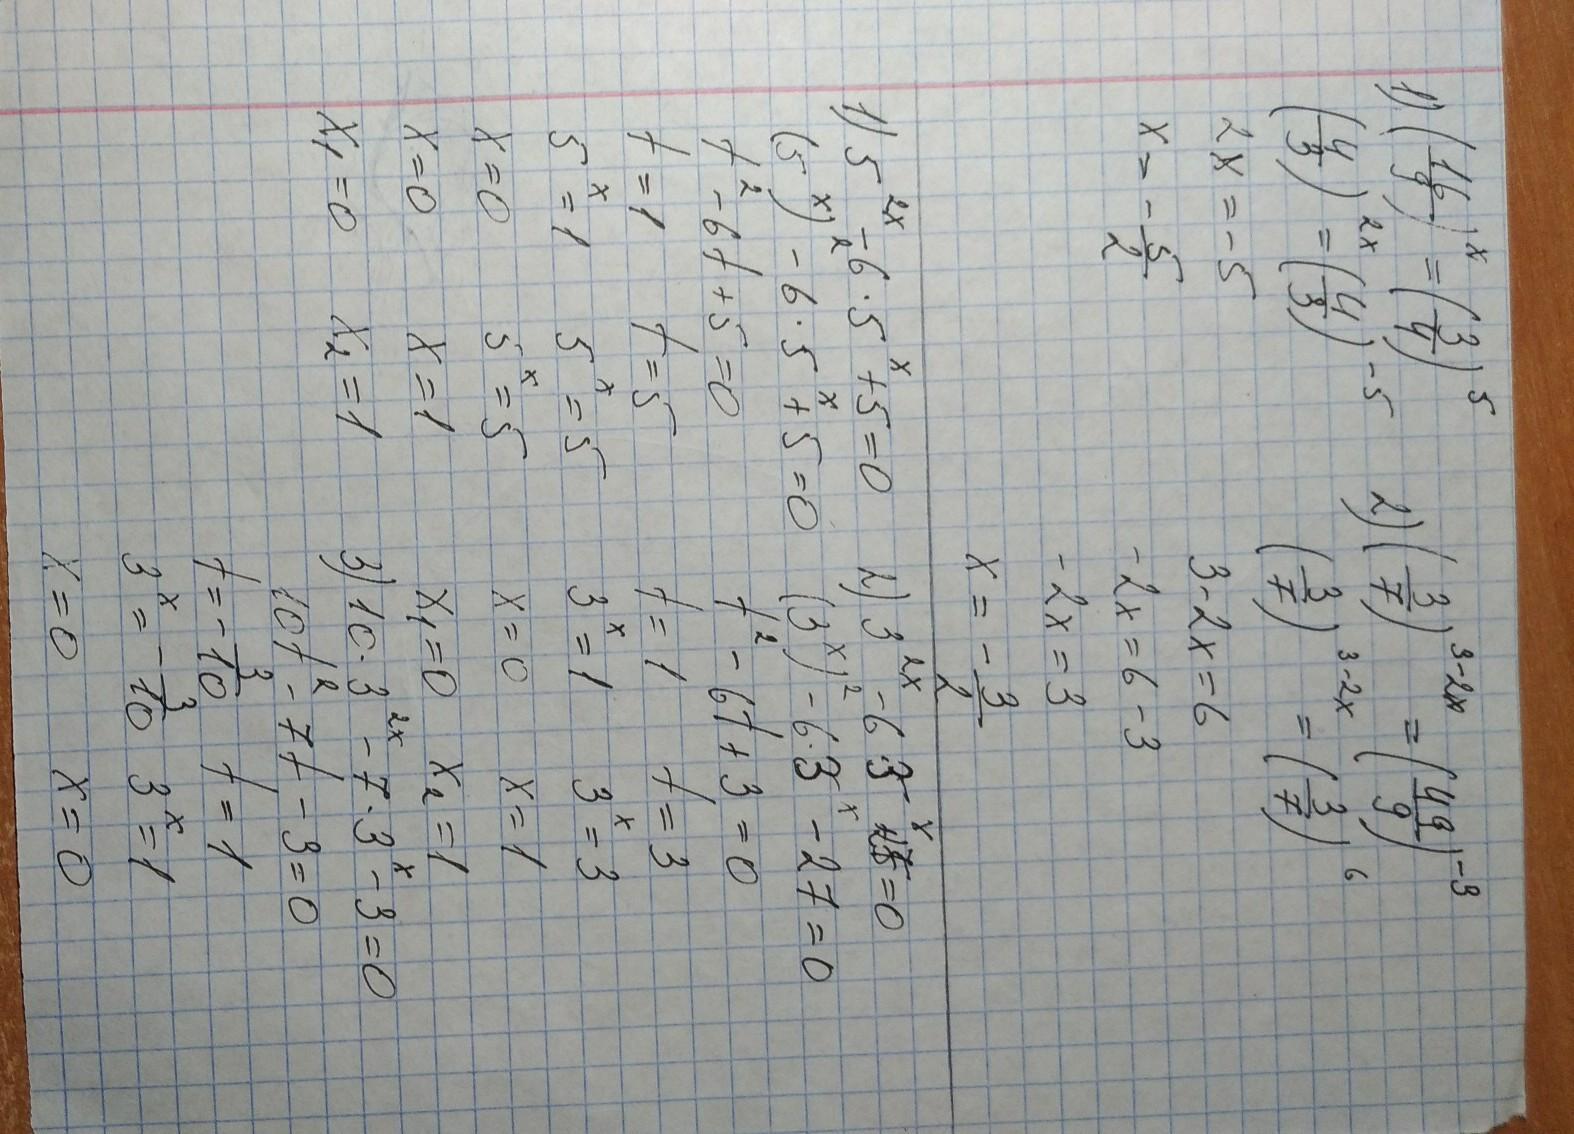 1) (16/9)^x = (3/4)^5
(4/3)^2x = (4/3)^-5
2x = -5
x = - 5/2
2) (3/7)^3-2x = (49/9)^-3
(3/7)^3-2x = (3/7)^6
3-2x=6
-2x=6-3
-2x=3
x = - 3/2
1) 5^2x - 6·5^x + 5 = 0
(5^x)^2 - 6·5^x + 5 = 0
t^2 - 6t + 5 = 0
t = 1 t = 5
5^x = 1 5^x = 5
x = 0 5^x = 5
x = 0 x = 1
x1 = 0 x2 = 1
2) 3^2x - 6·3^x = 0
(3^x)^2 - 6·3^x - 27 = 0
t^2 - 6t + 3 = 0
t = 1 t = 3
3^x = 1 3^x = 3
x = 0 x = 1
x1 = 0 x2 = 1
3) 10·3^2x - 7·3^x - 3 = 0
10t^2 - 7t - 3 = 0
t = - 3/10 t = 1
3^x = - 3/10 3^x = 1
x = 0 x = 0